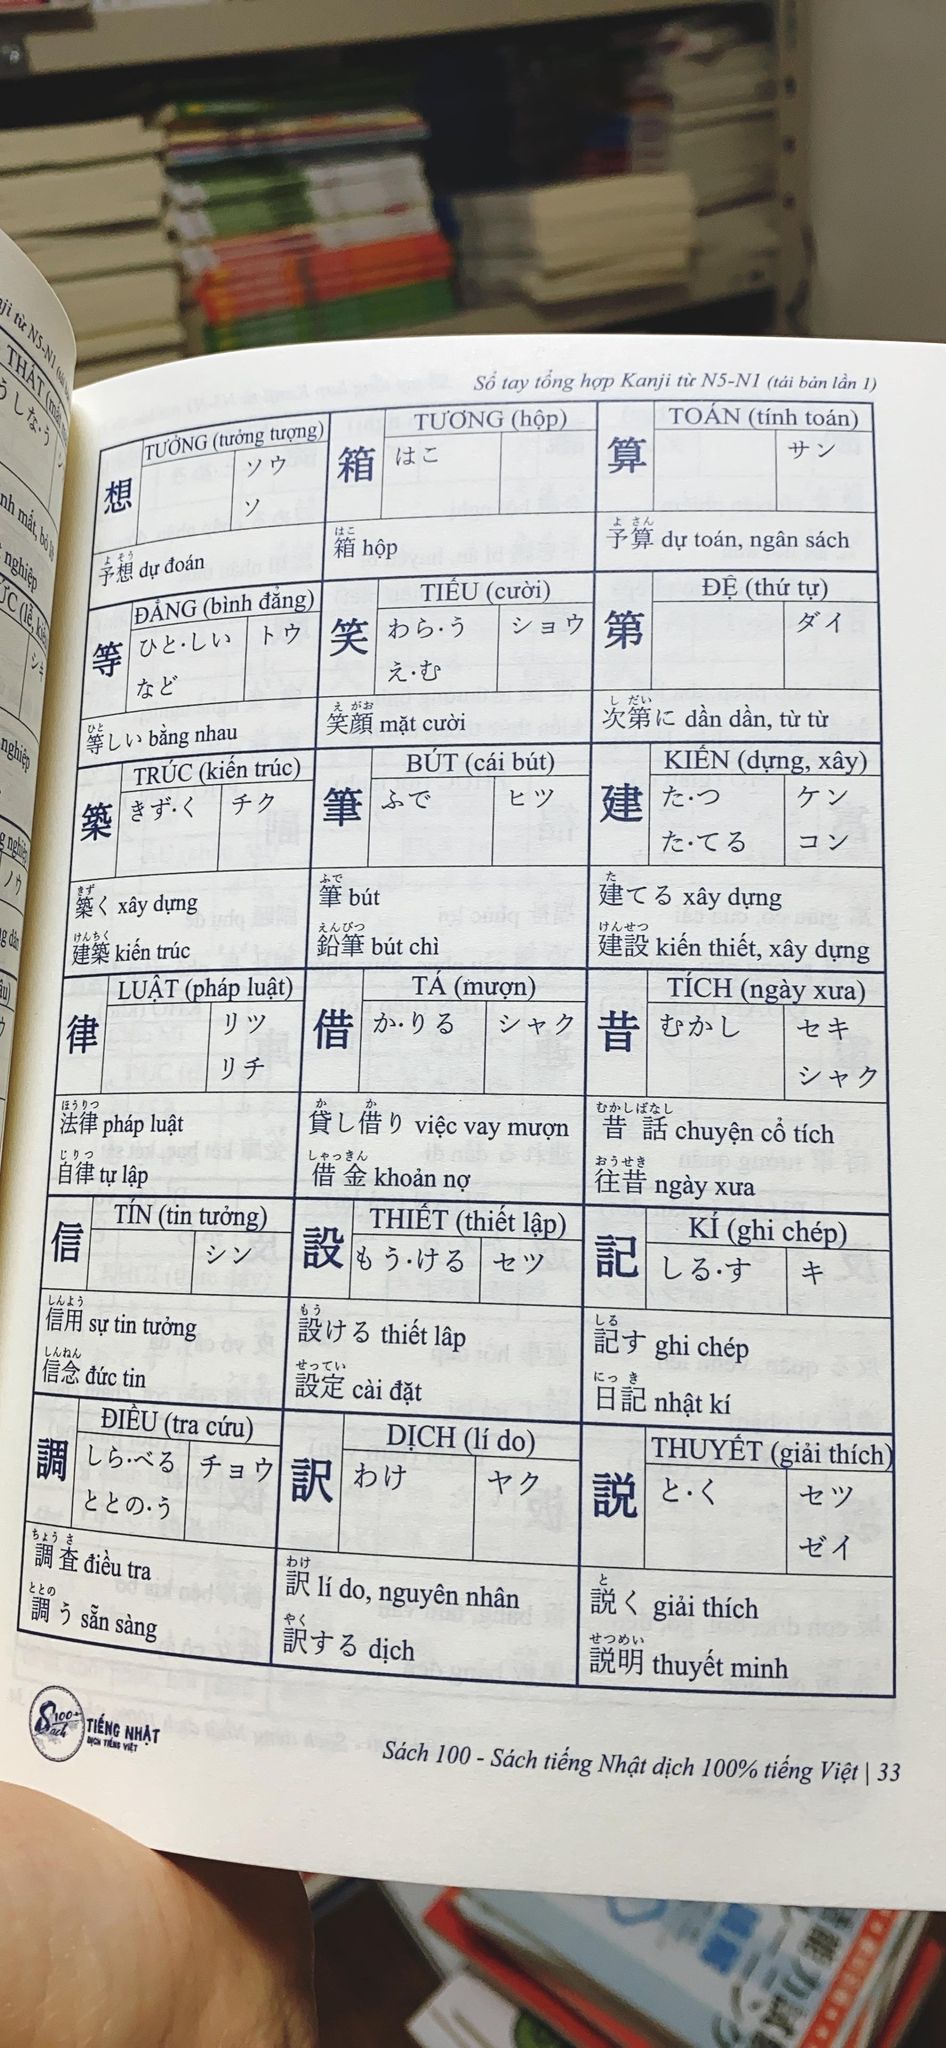 Sổ tay tổng hợp Kanji từ N5-N1 (tái bản lần 1)
想 TƯỞNG (tưởng tượng)
ソウ
ソ
よ そう
予想 dự đoán
箱 TƯƠNG (hộp)
はこ
はこ
箱 hộp
算 TOÁN (tính toán)
サン
よ さん
予算 dự toán, ngân sách
等 ĐẲNG (bình đẳng)
ひと·しい トウ
など
ひと
等しい bằng nhau
笑 TIẾU (cười)
わら·う ショウ
え·む
え がお
笑顔 mặt cười
第 ĐỆ (thứ tự)
ダイ
し だい
次第に dần dần, từ từ
築 TRÚC (kiến trúc)
きず·く チク
きず
築く xây dựng
けんちく
建築 kiến trúc
筆 BÚT (cái bút)
ふで ヒツ
ふで
筆 bút
えんぴつ
鉛筆 bút chì
建 KIẾN (dựng, xây)
た·つ ケン
た·てる コン
た
建てる xây dựng
けんせつ
建設 kiến thiết, xây dựng
律 LUẬT (pháp luật)
リツ
リチ
ほうりつ
法律 pháp luật
じりつ
自律 tự lập
借 TÁ (mượn)
か·りる シャク
か か
貸し借り việc vay mượn
しゃっきん
借金 khoản nợ
昔 TÍCH (ngày xưa)
むかし セキ
シャク
むかしばなし
昔話 chuyện cổ tích
おうせき
往昔 ngày xưa
信 TÍN (tin tưởng)
シン
しんよう
信用 sự tin tưởng
しんねん
信念 đức tin
設 THIẾT (thiết lập)
もう·ける セツ
もう
設ける thiết lâp
せってい
設定 cài đặt
記 KÍ (ghi chép)
しる·す キ
しる
記す ghi chép
にっ き
日記 nhật kí
調 ĐIỀU (tra cứu)
しら·べる チョウ
ととの·う
ちょう さ
調査 điều tra
ととの
調う sẵn sàng
訳 DỊCH (lí do)
わけ ヤク
わけ
訳 lí do, nguyên nhân
やく
訳する dịch
説 THUYẾT (giải thích)
と·く セツ
ゼイ
と
説く giải thích
せつめい
説明 thuyết minh
100+
Sách
TIẾNG NHẬT
DỊCH TIẾNG VIỆT
Sách 100 - Sách tiếng Nhật dịch 100% tiếng Việt | 33